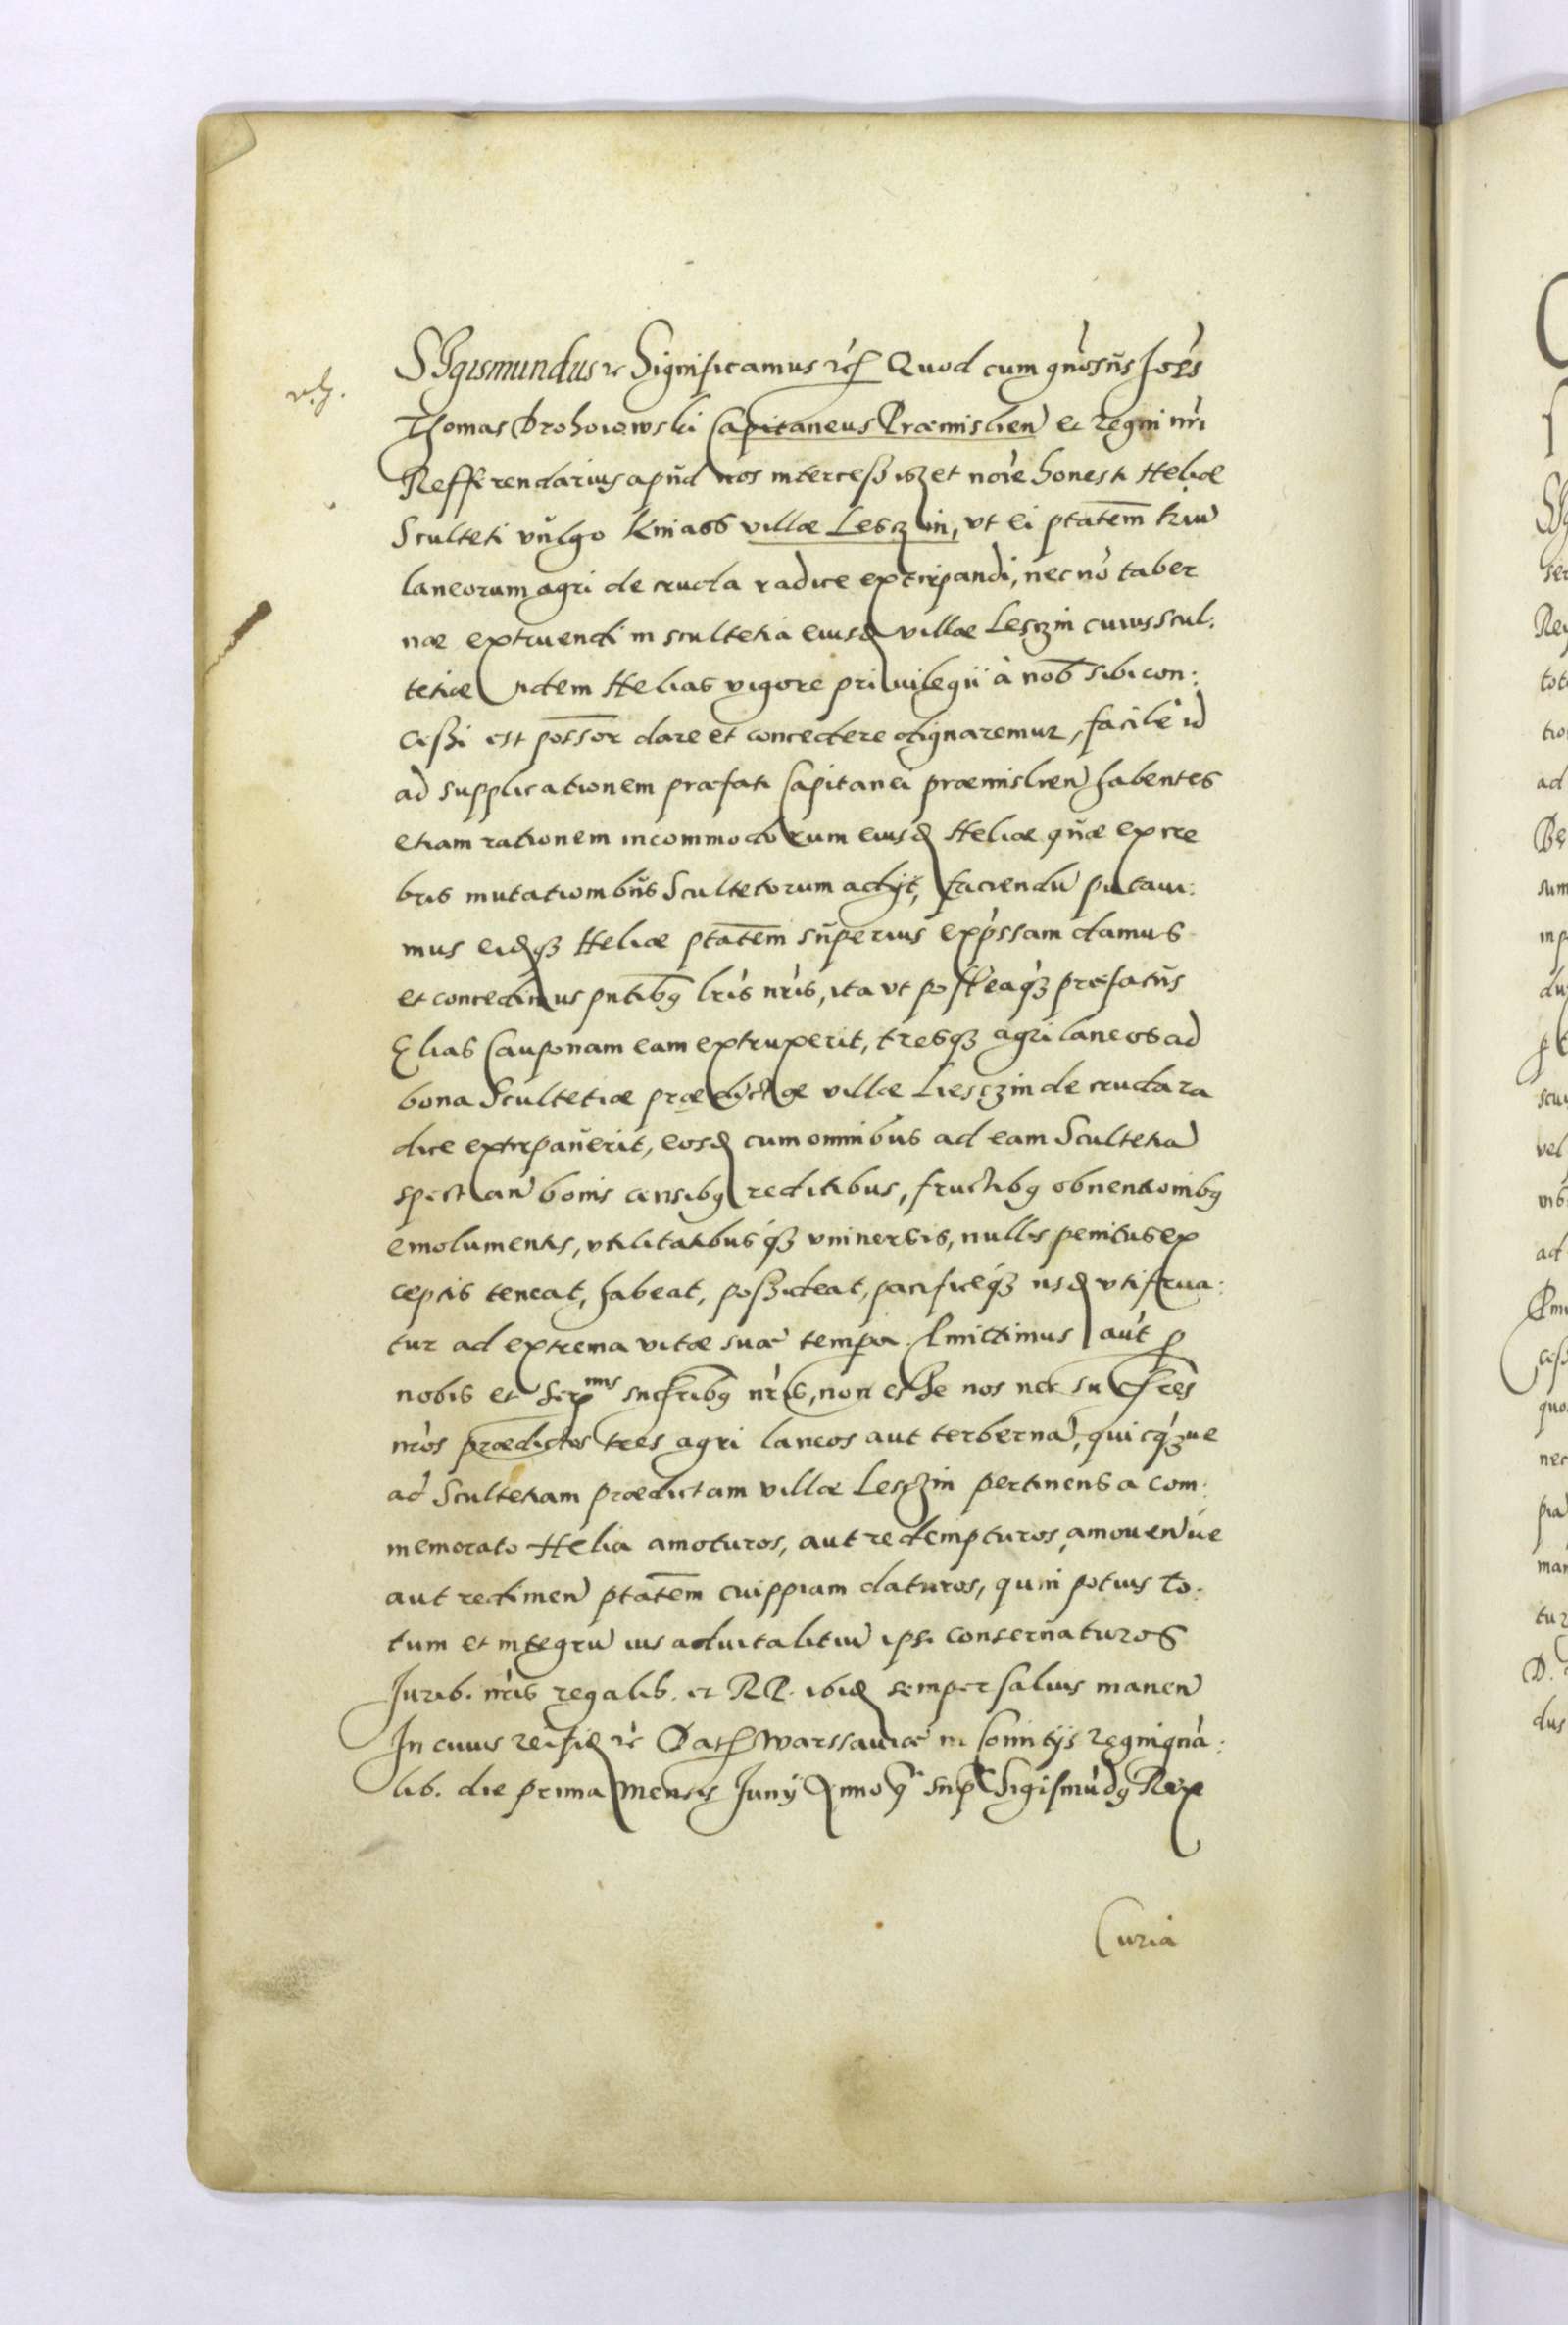 v. z.
SIgismundus etc Significamus etc Quod cum gnosus Joes
Thomas Drohoiowski Capitaneus Præmislien et Regni nri
Refferendarius apud nos intercessisset noie honesti Heliæ
Sculteti vulgo Kniass villæ Lesczin, vt ei ptatem triu
laneorum agri de cruda radice extirpandi, nec no taber
næ extruendi in scultetia eiusd villæ Lesczin cuius Scul:
tetiæ idem Helias vigore priuilegii à nob sibi con:
cessi est possor dare et concedere dignaremur, facile id
ad supplicationem præfati Capitanei præmislien habentes
etiam rationem incommodorum eiusd Heliæ quæ ex cre
bris mutationibus Scultetorum adijt, faciendu putaui:
mus eidq3 Heliæ ptatem superius exprssam damus
et concedimus pntibq lris nris, ita vt posteaq3 præfatus
Elias Cauponam eam extruxerit, tresq3 agri laneos ad
bona Scultetiæ prædictæ villæ Liesczin de cruda ra
dice extirpauerit, eosd cum omnibus ad eam Scultetia
spectan bonis censibq reditibus, fructibq obuentionibq
emolumentis, vtilitatibusq3 vniuersis, nullis penitus ex
ceptis teneat, habeat, possideat, pacificeq3 iisd vti frua:
tur ad extrema vitæ suæ tempora. Pmittimus aut p
nobis et Ser mis sucsribq nris, non esse nos nec sucsres
nros prædictos tres agri laneos aut terberna, quicq3ue
ad Scultetiam prædictam villæ Lesczin pertinens a com:
memorato Helia amoturos, aut redempturos, amouen ue
aut redimen ptatem cuippiam daturos, quin potius to:
tum et integru ius aduitalitiu ipsi conseruaturos
Jurib. nris regalib. et RP. ibid semper saluis manen
In cuius rei fid etc Dat Warssauiæ in Comitijs Regni gna:
lib. die prima Mensis Junij Anno q sup Sigismudq Rex
Curia